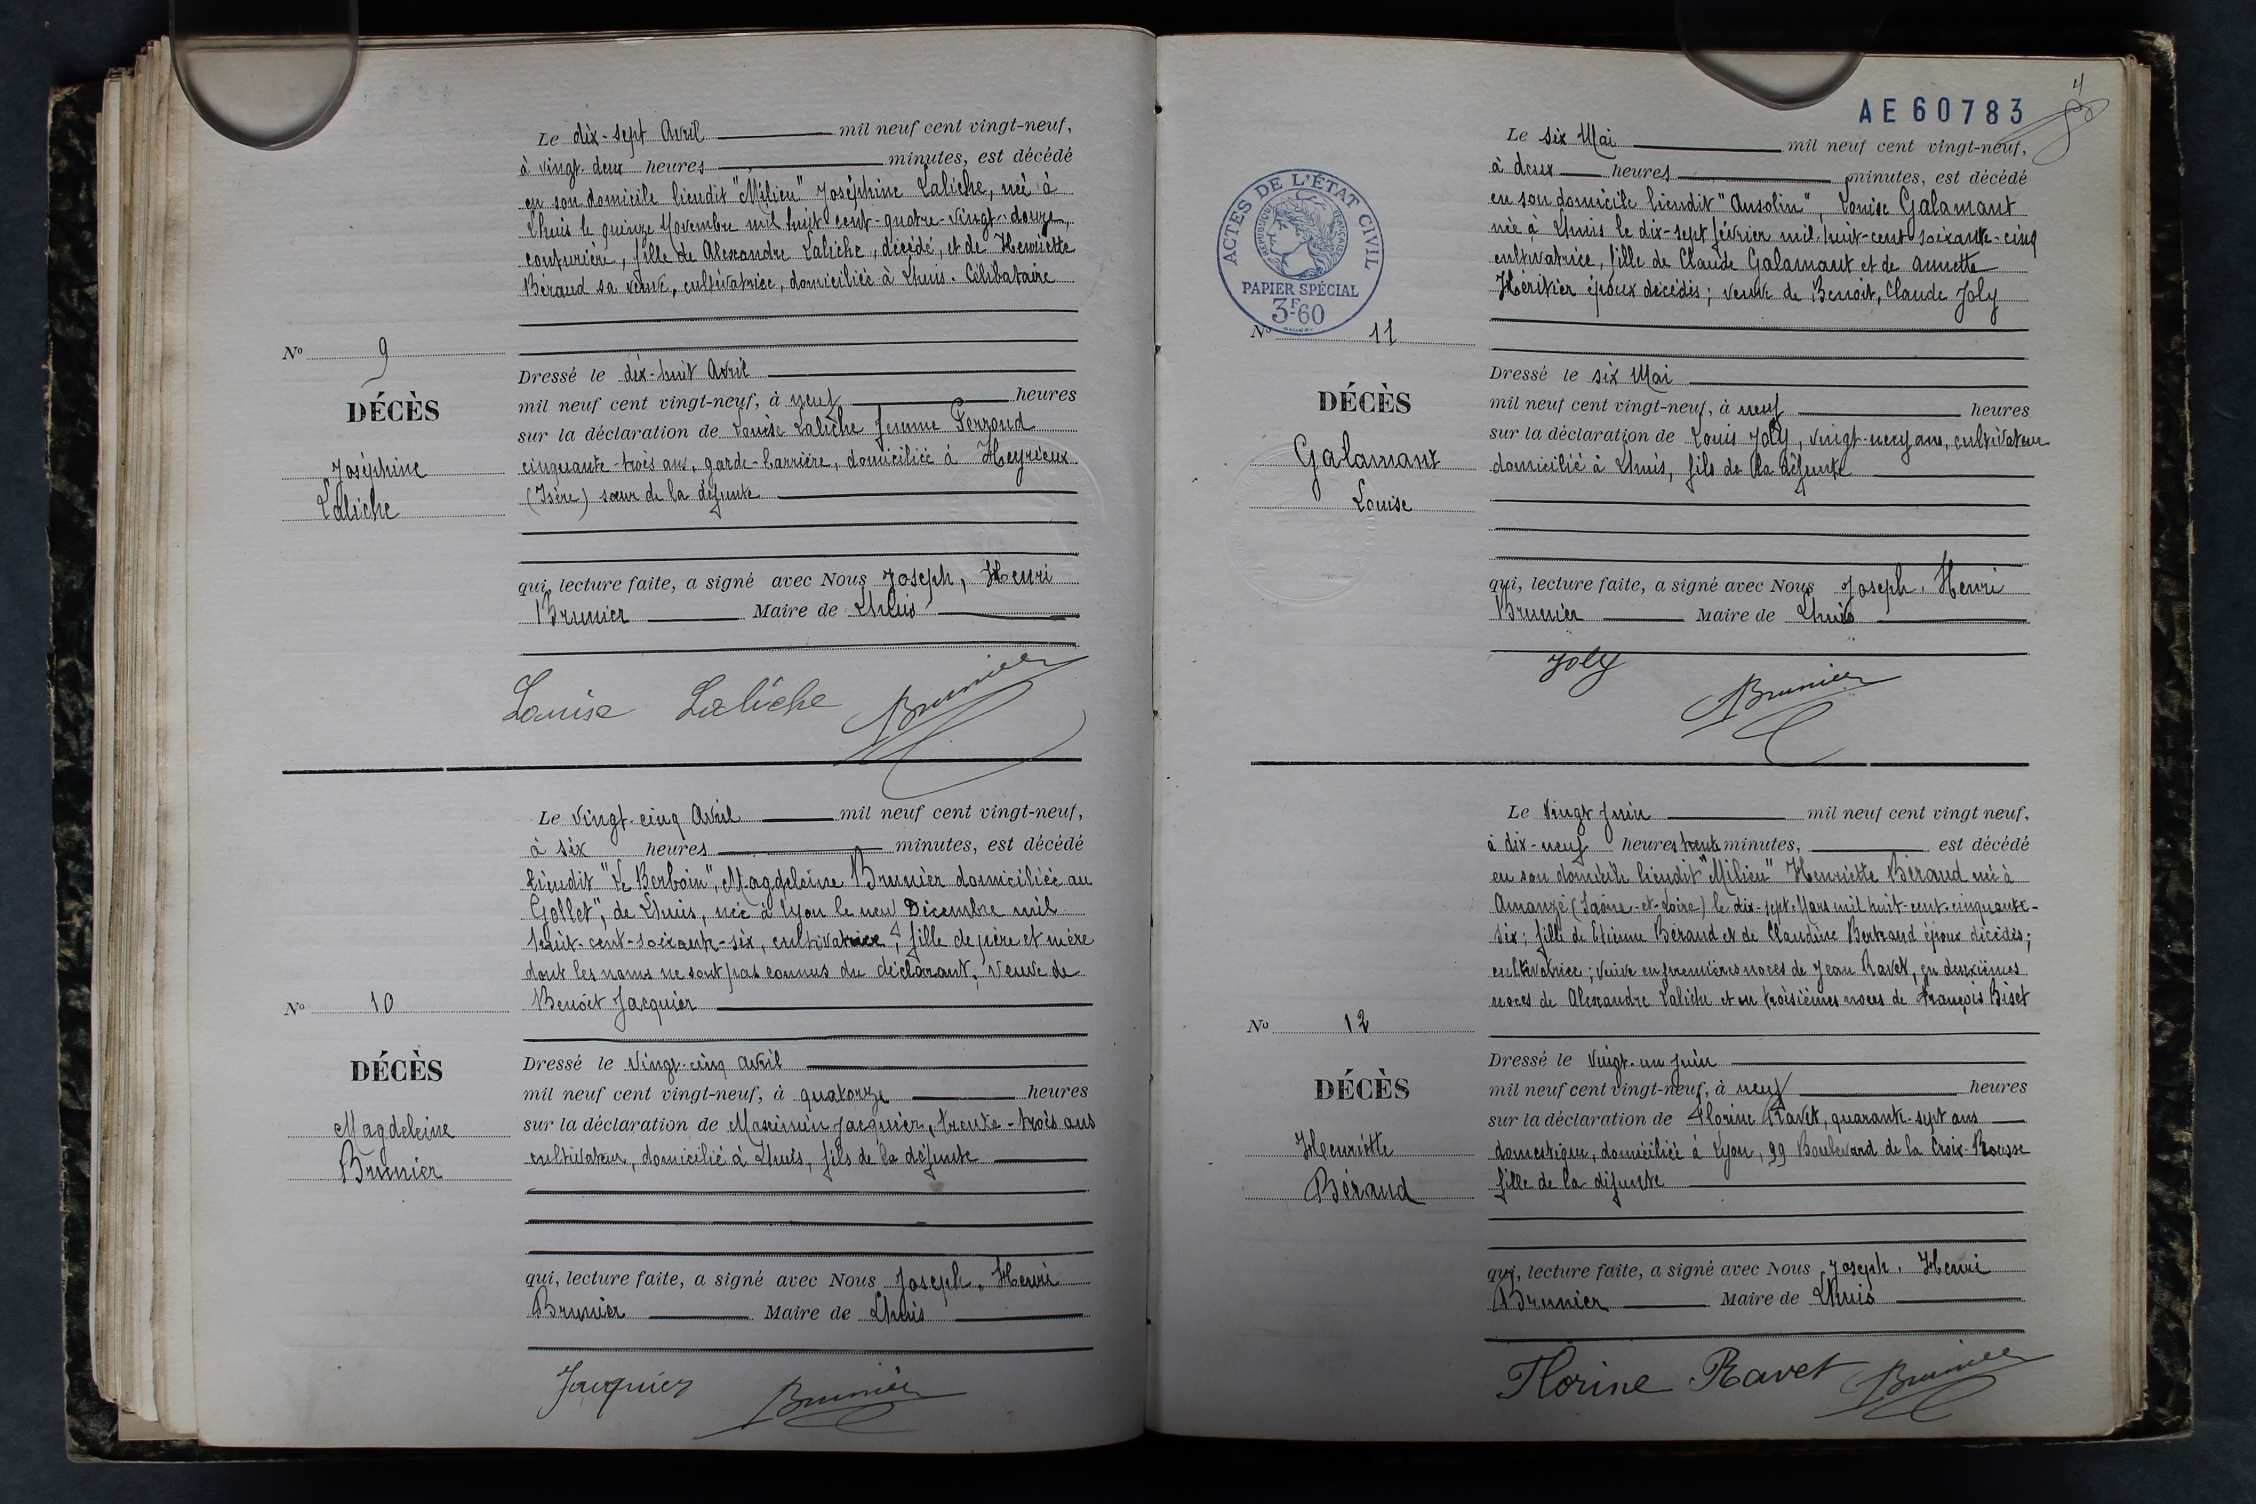 Le dix-sept Avril mil neuf cent vingt-neuf,
à vingt-deux heures minutes, est décédé
en son domicile lieudit "Milieu" Joséphine Laliche, née à
Lhuis le quinze Novembre mil huit cent-quatre-vingt-douze,
couturière, fille de Alexandre Laliche, décédé, et de Henriette
Béraud sa veuve, cultivatrice, domiciliée à Lhuis. Célibataire
No 9
Dressé le dix-huit Avril
DÉCÈS
mil neuf cent vingt-neuf, à neuf heures
sur la déclaration de Louise Laliche femme Perzoud
Joséphine
cinquante-trois ans, garde-barrière, domiciliée à Heyrieux
Laliche
(Isère) sœur de la défunte
qui, lecture faite, a signé avec Nous Joseph, Henri
Brunier Maire de Lhuis
Louise Laliche Brunier
Le vingt-cinq Avril mil neuf cent vingt-neuf,
à six heures minutes, est décédé
lieudit "Le Berboin", Magdeleine Brunier domiciliée au
Gollet", de Lhuis, née à Lyon le neuf Décembre mil
huit-cent-soixante-six, cultivatrice, fille de père et mère
dont les noms ne sont pas connus du déclarant, veuve de
Benoît Jacquier
No 10
Dressé le vingt-cinq Avril
DÉCÈS
mil neuf cent vingt-neuf, à quatorze heures
sur la déclaration de Maximin Jacquier, trente-trois ans
Magdeleine
cultivateur, domicilié à Lhuis, fils de la défunte
Brunier
qui, lecture faite, a signé avec Nous Joseph, Henri
Brunier Maire de Lhuis
Jacquier Brunier
4
AE60783
Le six Mai mil neuf cent vingt-neuf,
à deux heures minutes, est décédé
en son domicile lieudit "Ansolin", Louise Galamant
née à Lhuis le dix-sept février mil-huit-cent-soixante-cinq
cultivatrice, fille de Claude Galamant et de Annette
Héritier époux décédés; veuve de Benoit, Claude Joly
ACTES DE L'ÉTAT CIVIL
RÉPUBLIQUE FRANÇAISE
PAPIER SPÉCIAL
3F60
No 11
Dressé le six Mai
DÉCÈS
mil neuf cent vingt-neuf, à neuf heures
sur la déclaration de Louis Joly, vingt-neuf ans, cultivateur
Galamant
domicilié à Lhuis, fils de la défunte
Louise
qui, lecture faite, a signé avec Nous Joseph, Henri
Brunier Maire de Lhuis
Joly
Brunier
Le vingt Juin mil neuf cent vingt neuf,
à dix-neuf heures trente minutes, est décédé
en son domicile lieudit "Milieu" Henriette Béraud née à
Amanzé (Saône-et-Loire) le dix-sept Mars mil huit-cent-cinquante-
six; fille de Etienne Béraud et de Claudine Bertrand époux décédés;
cultivatrice; veuve en premières noces de Jean Ravet, en deuxièmes
noces de Alexandre Laliche et en troisièmes noces de François Biset
No 12
Dressé le vingt-un Juin
DÉCÈS
mil neuf cent vingt-neuf, à neuf heures
sur la déclaration de Florine Ravet, quarante-sept ans
Henriette
domestique, domiciliée à Lyon, 99 Boulevard de la Croix-Rousse
Béraud
fille de la défunte
qui, lecture faite, a signé avec Nous Joseph, Henri
Brunier Maire de Lhuis
Florine Ravet Brunier